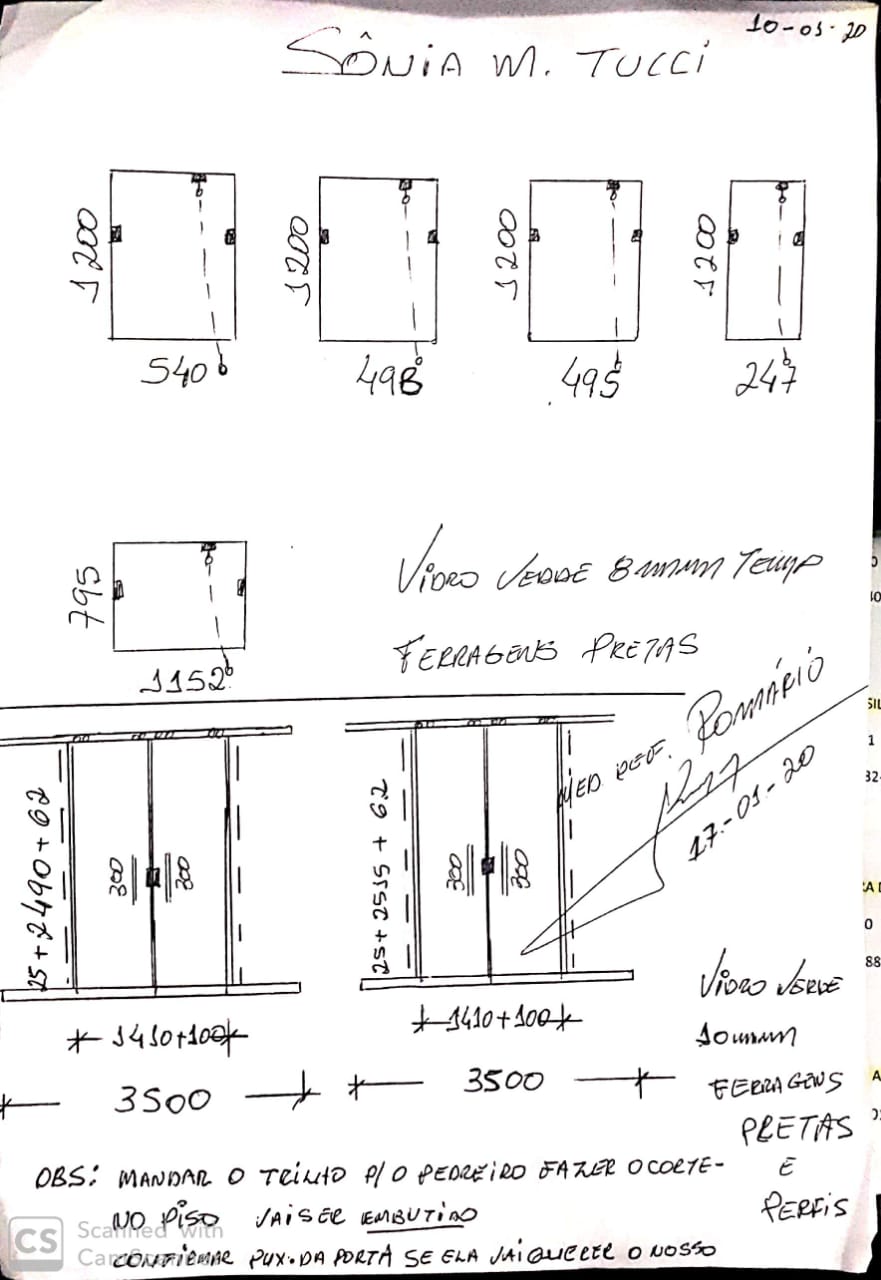 10-01-20
SÔNIA M. TUCCI
1200
1200
1200
1200
540
498
495
247
795
VIDRO VERDE 8 mmm TEMP
1152
FERRAGENS PRETAS
MED. REF. ROMÁRIO
17-01-20
25+2490+62
300
300
25+2515+62
300
300
1410+100
1410+100
3500
3500
VIDRO VERDE
10mmm
FERRAGENS
PRETAS
E
PERFIS
OBS: MANDAR O TRILHO P/ O PEDREIRO FAZER O CORTE-
NO PISO VAI SER EMBUTIDO
CONFIRMAR PUX. DA PORTA SE ELA VAI QUERER O NOSSO
CS
Scanned with
CamScanner